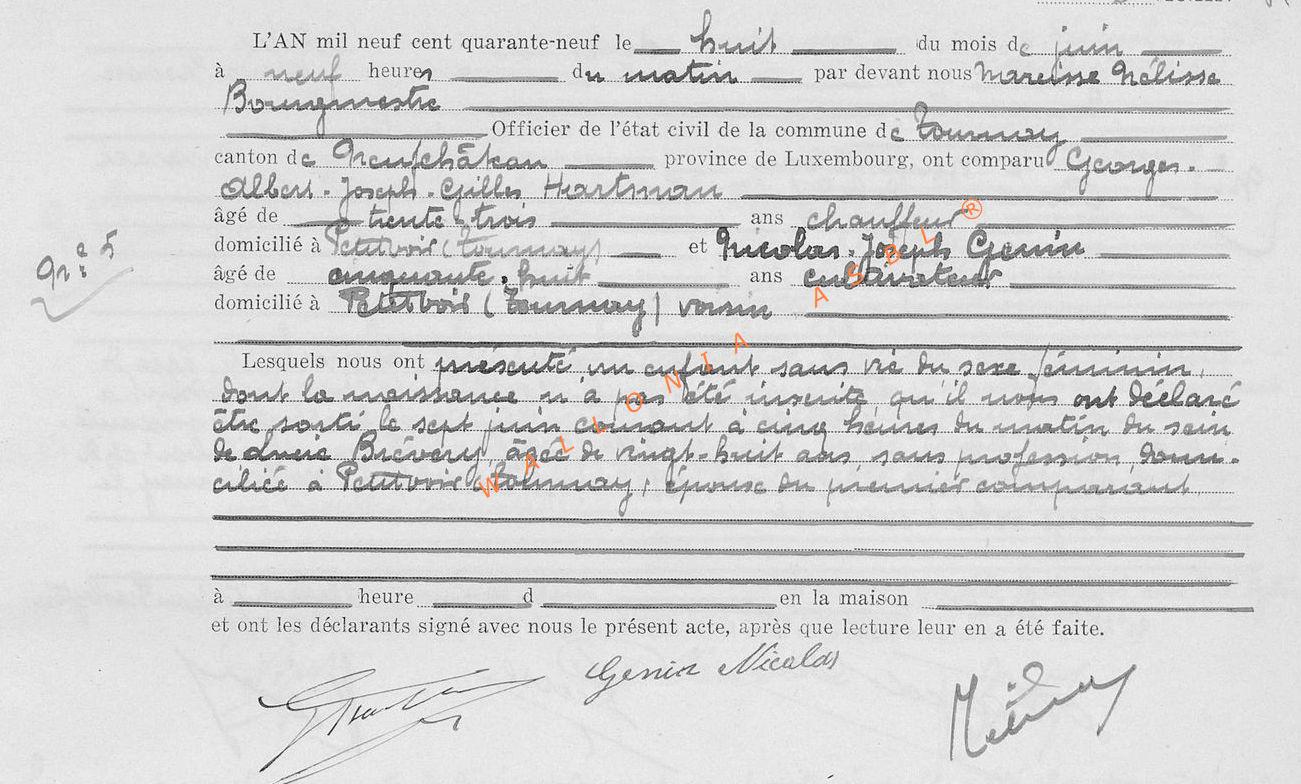 L'AN mil neuf cent quarante-neuf le huit du mois de juin
à neuf heures du matin par devant nous Narcisse Nélisse
Bourgmestre
Officier de l'état civil de la commune de Tournay
canton de Neufchâteau province de Luxembourg, ont comparu Georges-
Albert-Joseph-Gilles Hartman
âgé de trente-trois ans chauffeur
domicilié à Petitvoir (Tournay) et Nicolas-Joseph Genin
N° 5
âgé de cinquante-huit ans cultivateur
domicilié à Petitvoir (Tournay) voisin
Lesquels nous ont présenté un enfant sans vie du sexe féminin,
dont la naissance n'a pas été inscrite, qu'il nous ont déclaré
être sorti le sept juin courant à cinq heures du matin du sein
de Lucie Brévery, âgée de vingt-huit ans, sans profession, domi-
ciliée à Petitvoir (Tournay, épouse du premier comparant.
à heure d en la maison
et ont les déclarants signé avec nous le présent acte, après que lecture leur en a été faite.
Genin Nicolas
WALLONIA ASBL ®